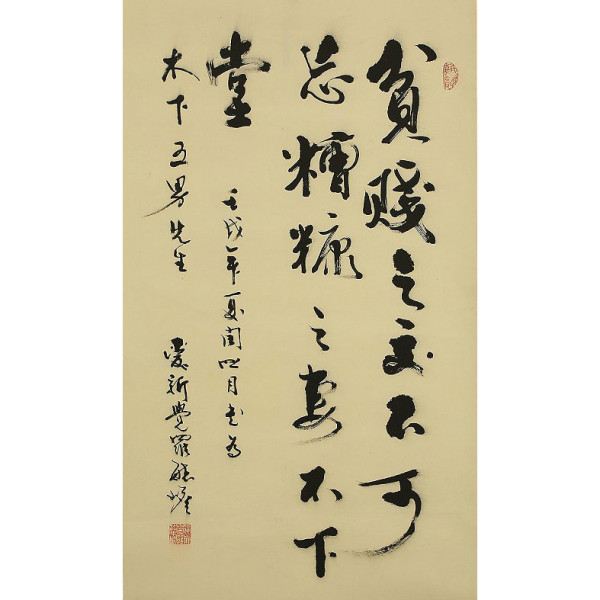 貧賤之交不可
忘糟糠之妻不下
堂
壬戌年夏閏四月書為
木下五男先生
愛新覺羅毓嶦